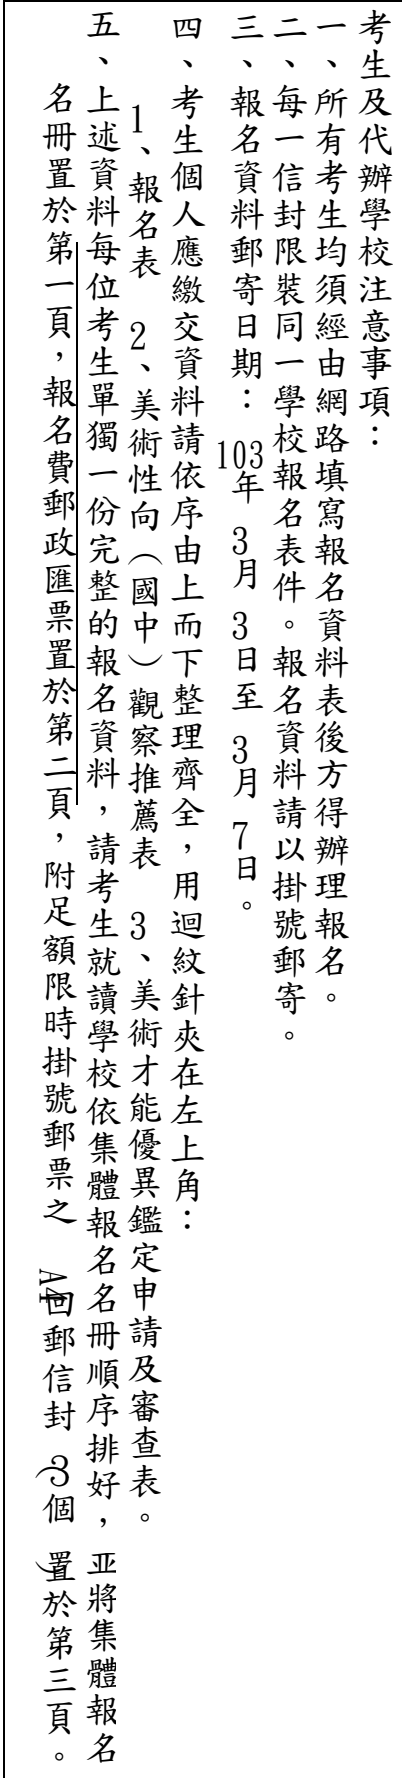 考生及代辦學校注意事項：
一、所有考生均須經由網路填寫報名資料表後方得辦理報名。
二、每一信封限裝同一學校報名表件。報名資料請以掛號郵寄。
三、報名資料郵寄日期：103年 3月 3日至 3月 7日。
四、考生個人應繳交資料請依序由上而下整理齊全，用迴紋針夾在左上角：
1、報名表 2、美術性向（國中）觀察推薦表 3、美術才能優異鑑定申請及審查表。
五、上述資料每位考生單獨一份完整的報名資料，請考生就讀學校依集體報名名冊順序排好，並將集體報名
名冊置於第一頁，報名費郵政匯票置於第二頁，附足額限時掛號郵票之 A4回郵信封（3個）置於第三頁。